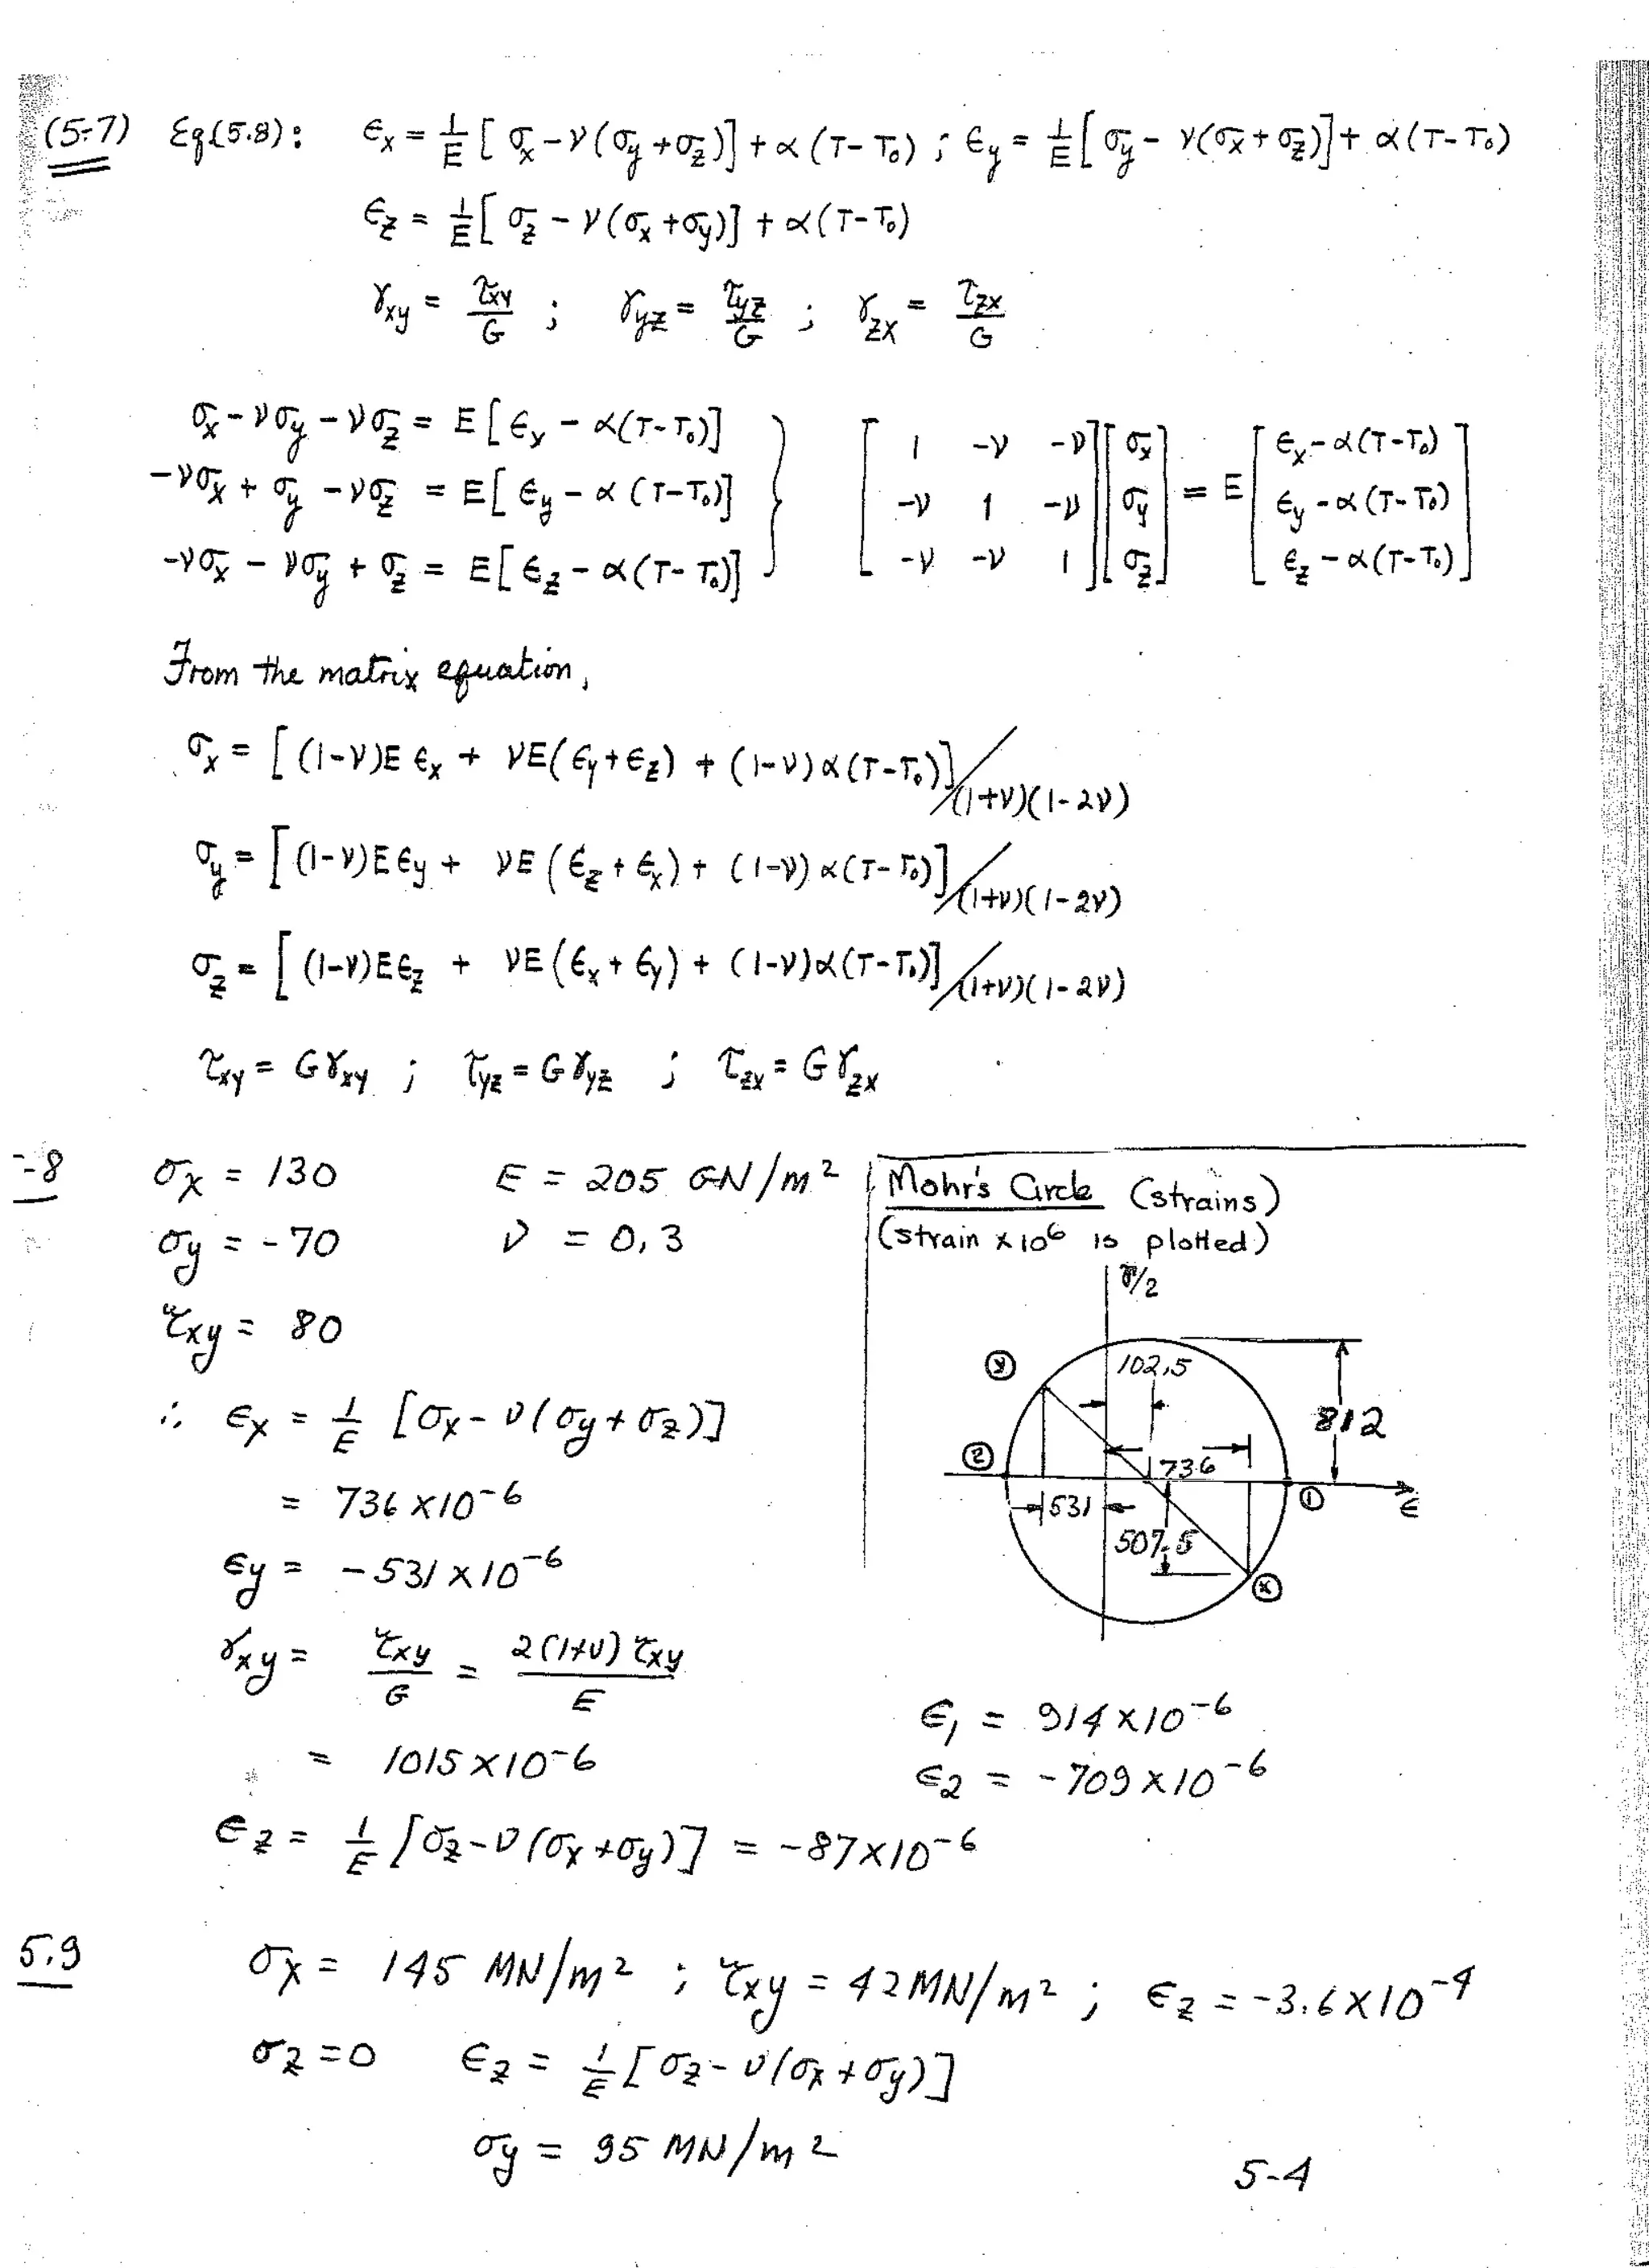 (5-7) Eq(5.8): ϵx = 1/E [σx - ν(σy + σz)] + α(T-T₀) ; ϵy = 1/E [σy - ν(σx + σz)] + α(T-T₀)
ϵz = 1/E [σz - ν(σx + σy)] + α(T-T₀)
γxy = τxy/G ; γyz = τyz/G ; γzx = τzx/G
σx - νσy - νσz = E[ϵx - α(T-T₀)]
-νσx + σy - νσz = E[ϵy - α(T-T₀)]
-νσx - νσy + σz = E[ϵz - α(T-T₀)]
[1 -ν -ν] [σx] = E [ϵx - α(T-T₀)]
[-ν 1 -ν] [σy] [ϵy - α(T-T₀)]
[-ν -ν 1] [σz] [ϵz - α(T-T₀)]
From the matrix equation,
σx = [(1-ν)E ϵx + νE(ϵy + ϵz) + (1-ν)α(T-T₀)]/(1+ν)(1-2ν)
σy = [(1-ν)E ϵy + νE(ϵz + ϵx) + (1-ν)α(T-T₀)]/(1+ν)(1-2ν)
σz = [(1-ν)E ϵz + νE(ϵx + ϵy) + (1-ν)α(T-T₀)]/(1+ν)(1-2ν)
τxy = Gγxy ; τyz = Gγyz ; τzx = Gγzx
-8 σx = 130 E = 205 GN/m²
σy = -70 ν = 0,3
τxy = 80
∴ ϵx = 1/E [σx - ν(σy + σz)]
= 736 x10⁻⁶
ϵy = -531 x10⁻⁶
γxy = τxy/G = 2(1+ν)τxy/E
= 1015 x10⁻⁶
ϵz = 1/E [σz - ν(σx + σy)] = -87x10⁻⁶
Mohr's Circle (strains)
(strain x 10⁶ is plotted)
γ/2
y
102,5
812
2
736
1
ϵ
531
507.5
x
ϵ₁ = 914 x10⁻⁶
ϵ₂ = -709 x10⁻⁶
5.9 σx = 145 MN/m² ; τxy = 42 MN/m² ; ϵz = -3.6x10⁻⁴
σz = 0 ϵz = 1/E [σz - ν(σx + σy)]
σy = 95 MN/m²
5-4